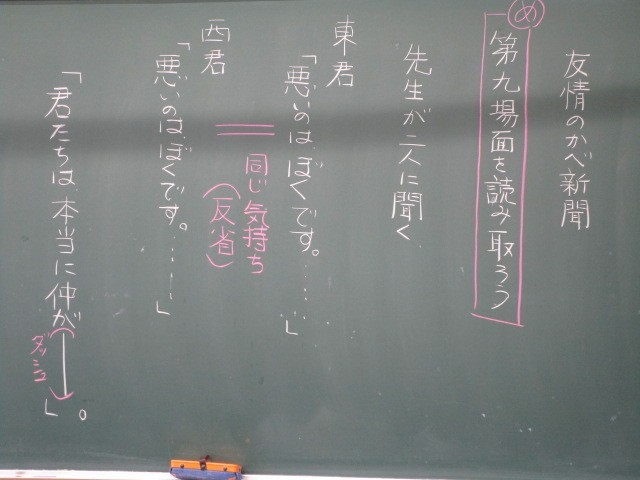 友情のかべ新聞
め
第九場面を読み取ろう
先生が二人に聞く
東君
「悪いのは、ぼくです。……」
＝
同じ気持ち
（反省）
西君
「悪いのは、ぼくです。……」
「君たちは、本当に仲が──」。
ダッシュ